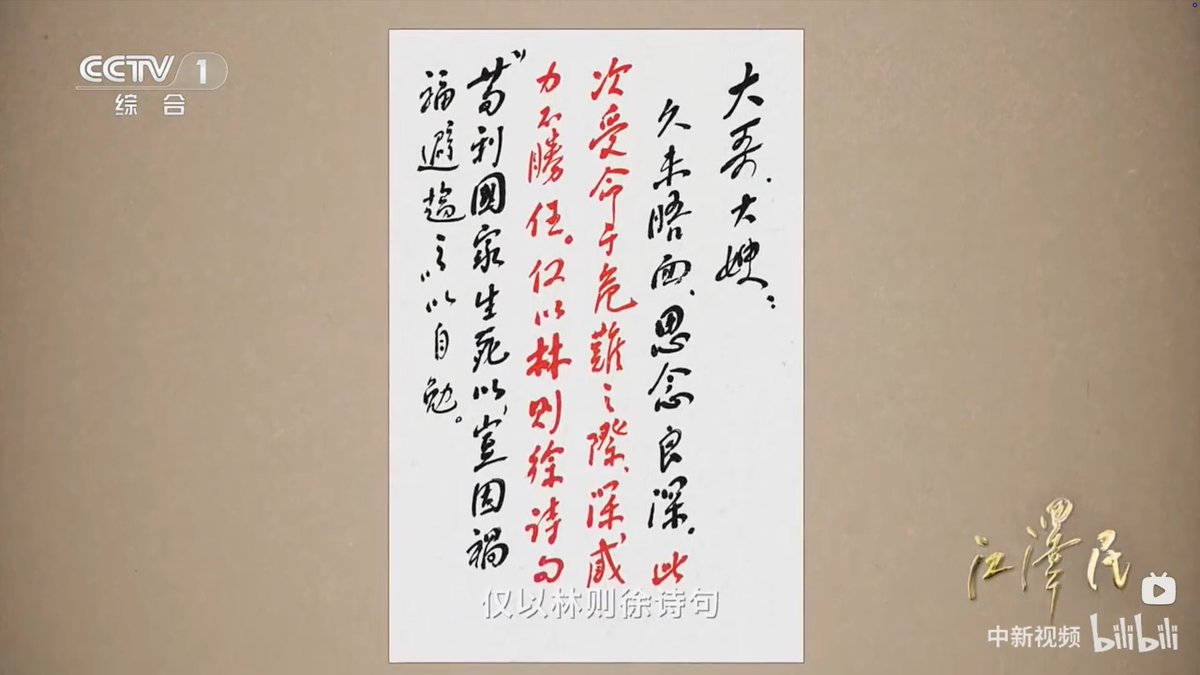 CCTV 1
综合
大哥、大嫂：
久未晤面、思念良深，此
次受命于危難之際，深感
力不勝任。仅以林则徐诗句
“苟利國家生死以，豈因禍
福避趨之”以自勉。
仅以林则徐诗句
江澤民
中新视频 bilibili